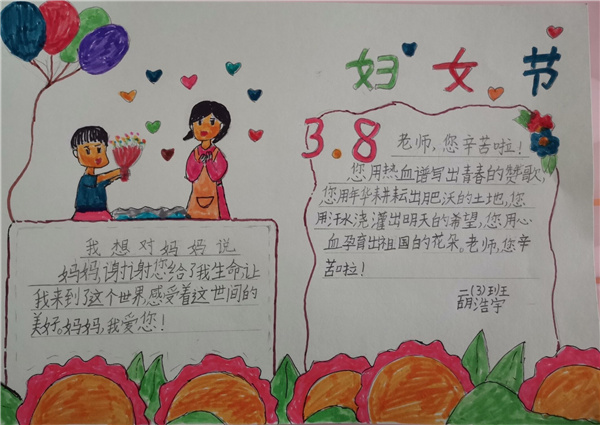 妇女节
3.8
老师,您辛苦啦!
您用热血谱写出青春的赞歌,
您用年华耕耘出肥沃的土地,您
用汗水浇灌出明天的希望,您用心
血孕育出祖国的花朵。老师,您辛
苦啦!
二(3)班
胡浩宇
我想对妈妈说
妈妈,谢谢您给了我生命,让
我来到了这个世界,感受着这世间的
美好。妈妈,我爱您!